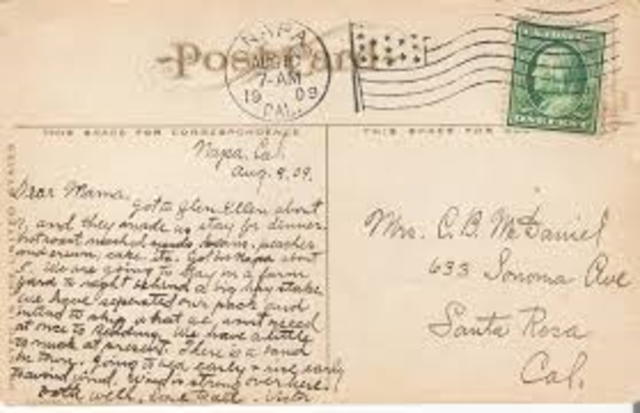 Post Card
NAPA
AUG 10
7-AM
1909
CAL.
ONE CENT
THIS SPACE FOR CORRESPONDENCE
THIS SPACE FOR
Napa, Cal.
Aug. 9, 09.
Dear Mama,
Got to Glen Ellen about
, and they made us stay for dinner.
hot roast mashed beans, peaches
and cream, cake, etc. Got to Napa about
5. We are going to stay in a farm
yard to night behind a big hay stake.
We have separated our pack and
intend to ship what we won't need
at once to Redding. We have a little
to much at present. There is a band
in town. Going to bed early & rise early
wind. Wind is strong over here.
Both well, Love to all. Victor
Mrs. C. B. McDaniel
633 Sonoma Ave
Santa Rosa
Cal.